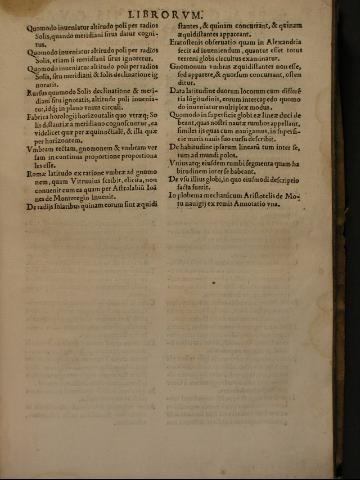 LIBRORVM.
Quomodo inueniatur altitudo poli per radios
Solis, quando meridiani situs datur cogni-
tus.
Quomodo inueniatur altitudo poli per radios
Solis, etiam si meridiani situs ignoretur.
Quomodo inueniatur altitudo poli per radios
Solis, situ meridiani & Solis declinatione ig
noratis.
Rursus quomodo Solis declinatione & meri-
diani situ ignotatis, altitudo poli inuenia-
tur, idq; in plano vnius circuli.
Fabrica horologij horizontalis quo vtræq; So
lis distantiæ à meridiano cognoscuntur, ea
videlicet quæ per æquinoctialē, & illa quæ
per horizontem.
Vmbram rectam, gnomonem & vmbram ver
sam in continua proportione proportiona
les esse.
Romæ latitudo ex ratione vmbræ ad gnomo
nem, quam Vitruuius scribit, elicita, non
conuenit cum ea quam per Astrolabiū Ioā
nes de Monteregio inuenit.
De radijs solaribus quinam eorum sint æquidi
stantes, & quinam concurrant, & quinam
æquidistantes appareant.
Eratostenis obseruatio quam in Alexandria
fecit ad inueniendum, quantus esset totus
terreni globi circultus examinatur.
Gnomonum vmbras æquidistantes non esse,
sed apparere, & quorsum concurrant, osten
ditur.
Data latitudine duorum locorum cum differē
tia lōgitudinis, eorum intercapedo quomo
do inueniatur multiplex modus.
Quomodo in superficie globi ex lineæ duci de
beant, quas nostri nautæ rumbos appellant,
similes ijs quas cum nauigamus, in superfi-
cie maris nauis suo cursu describit.
De habitudine ipsarum linearū cum inter se,
tum ad mundi polos.
Vnius atq; eiusdem rumbi segmenta quam ha
bitudinem inter se habeant.
De vsu illius globi, in quo eiusmodi descriptio
facta fuerit.
In problema mechanicum Aristotelis de Mo-
tu nauigij ex remis Annotatio vna.